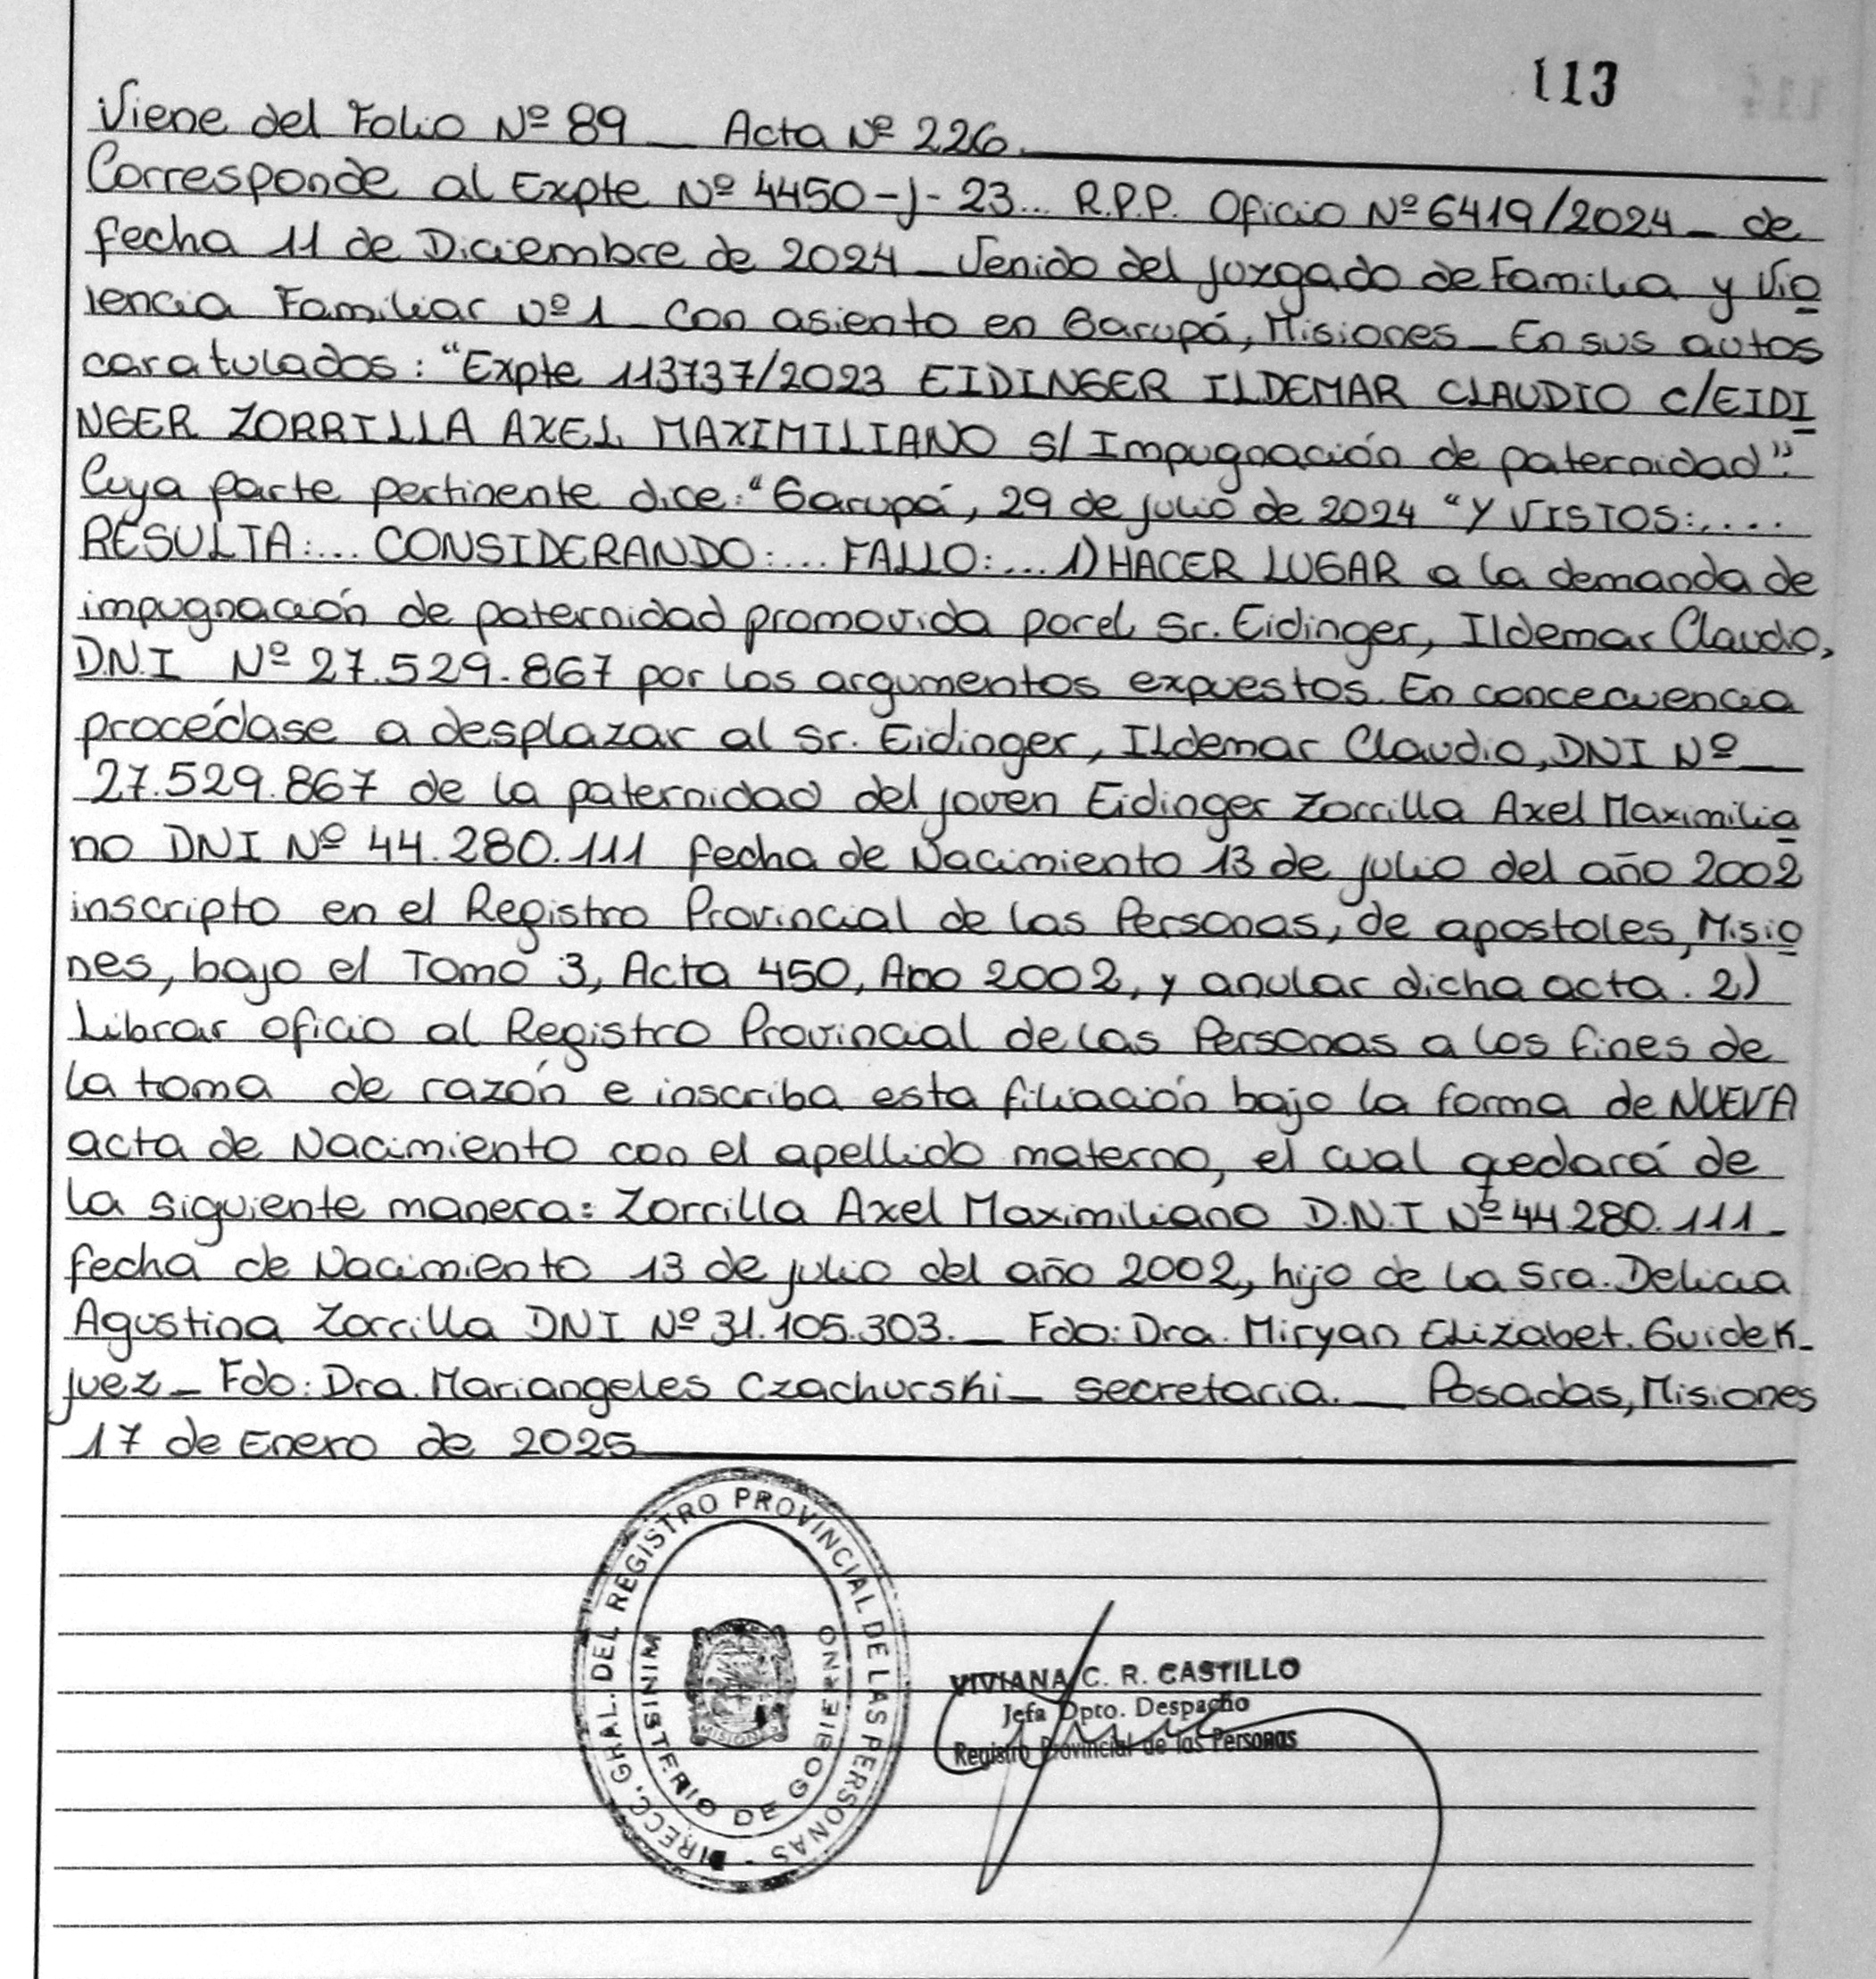 113
Viene del Folio Nº 89 _ Acta Nº 226.
Corresponde al Expte Nº 4450-J-23... R.P.P. Oficio Nº 6419/2024 _ de
fecha 11 de Diciembre de 2024 _ Venido del Juzgado de Familia y Vio
lencia Familiar Nº 1 con asiento en Garupá, Misiones _ En sus autos
caratulados: "Expte 113737/2023 EIDINGER ILDEMAR CLAUDIO C/EIDI
NGER ZORRILLA AXEL MAXIMILIANO S/ Impugnación de paternidad".
Cuya parte pertinente dice: "Garupá, 29 de julio de 2024 "Y VISTOS:....
RESULTA:... CONSIDERANDO:... FALLO:... 1) HACER LUGAR a la demanda de
impugnación de paternidad promovida por el Sr. Eidinger, Ildemar Claudo,
D.N.I Nº 27.529.867 por los argumentos expuestos. En concecuencia
procédase a desplazar al Sr. Eidinger, Ildemar Claudio, DNI Nº _
27.529.867 de la paternidad del joven Eidinger Zorrilla Axel Maximilia
no DNI Nº 44.280.111 fecha de Nacimiento 13 de julio del año 2002
inscripto en el Registro Provincial de las Personas, de apostoles, Misio
nes, bajo el Tomo 3, Acta 450, Ano 2002, y anular dicha acta. 2)
Librar oficio al Registro Provincial de las Personas a los fines de
la toma de razón e inscriba esta filiación bajo la forma de NUEVA
acta de Nacimiento con el apellido materno, el cual qedará de
la siguiente manera: Zorrilla Axel Maximiliano D.N.I Nº 44.280.111 _
fecha de Nacimiento 13 de julio del año 2002, hijo de la Sra. Delicia
Agustina Zorrilla DNI Nº 31.105.303. _ Fdo: Dra. Miryan Elizabet. Guidek _
juez _ Fdo: Dra. Mariangeles Czachurski _ secretaria. _ Posadas, Misiones
17 de Enero de 2025
DIRECC. GRAL. DEL REGISTRO PROVINCIAL DE LAS PERSONAS -
MINISTERIO DE GOBIERNO
MISIONES
VIVIANA C. R. CASTILLO
Jefa Dpto. Despacho
Registro Provincial de las Personas